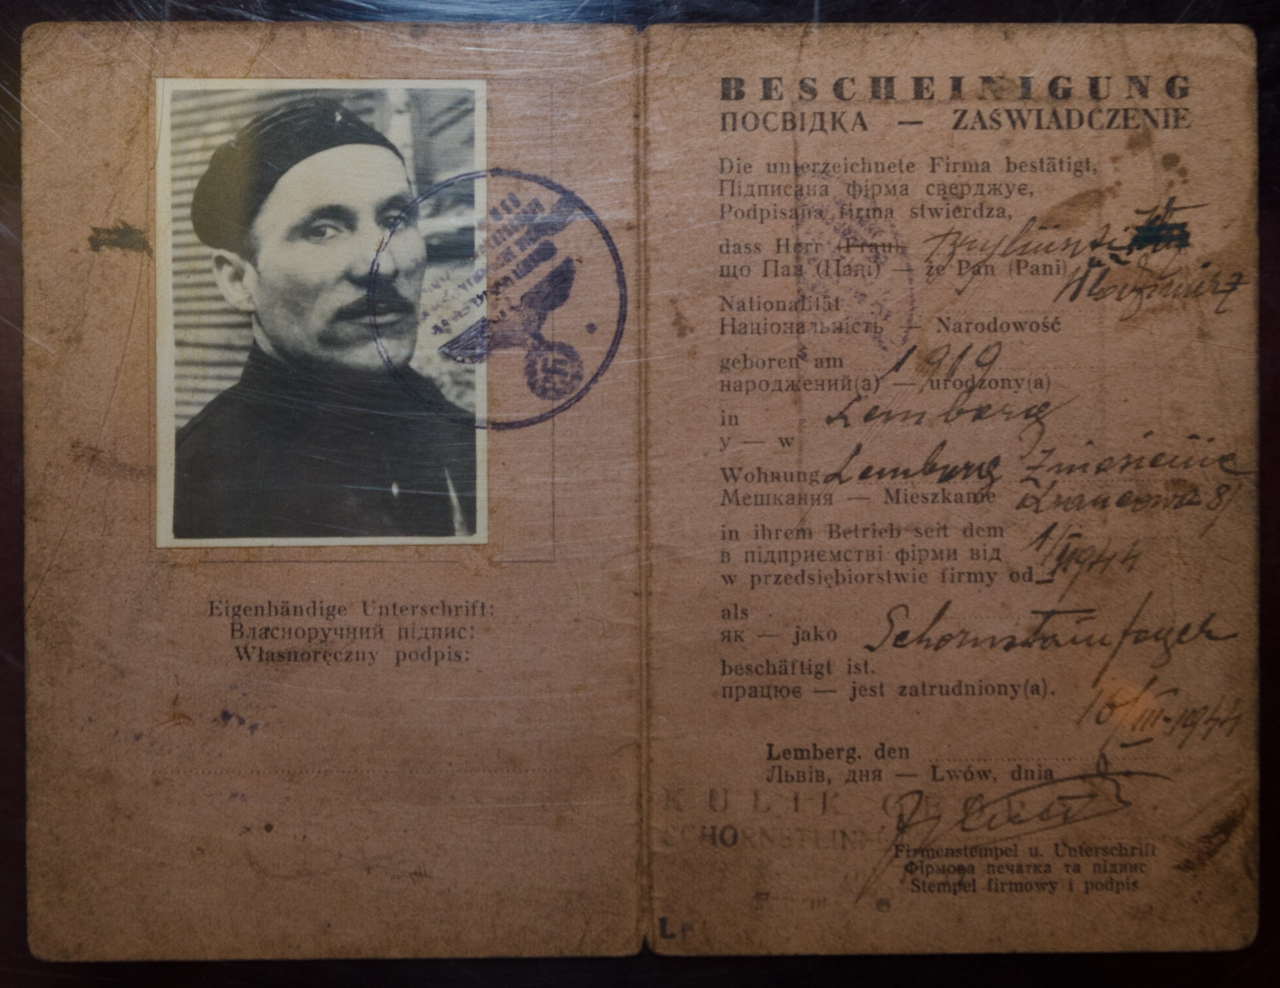 Eigenhändige Unterschrift:
Власноручний підпис:
Własnoręczny podpis:
BESCHEINIGUNG
ПОСВІДКА — ZAŚWIADCZENIE
Die unterzeichnete Firma bestätigt,
Підписана фірма сверджує,
Podpisana firma stwierdza,
dass Herr (Frau)
що Пан (Пані) — że Pan (Pani)
Włodzimierz
Nationalität
Національність — Narodowość
geboren am 1919
народжений(а) — urodzony(a)
in Lemberg
у — w
Wohnung Lemberg Zniesienie
Мешкання — Mieszkanie 81
in ihrem Betrieb seit dem
в підприємстві фірми від
w przedsiębiorstwie firmy od 1/II 1944
als
як — jako
beschäftigt ist.
працює — jest zatrudniony(a).
16/III-1944
Lemberg, den
Львів, дня — Lwów, dnia
KULIK
SCHORNSTEINF
Firmenstempel u. Unterschrift
Фірмова печатка та підпис
Stempel firmowy i podpis